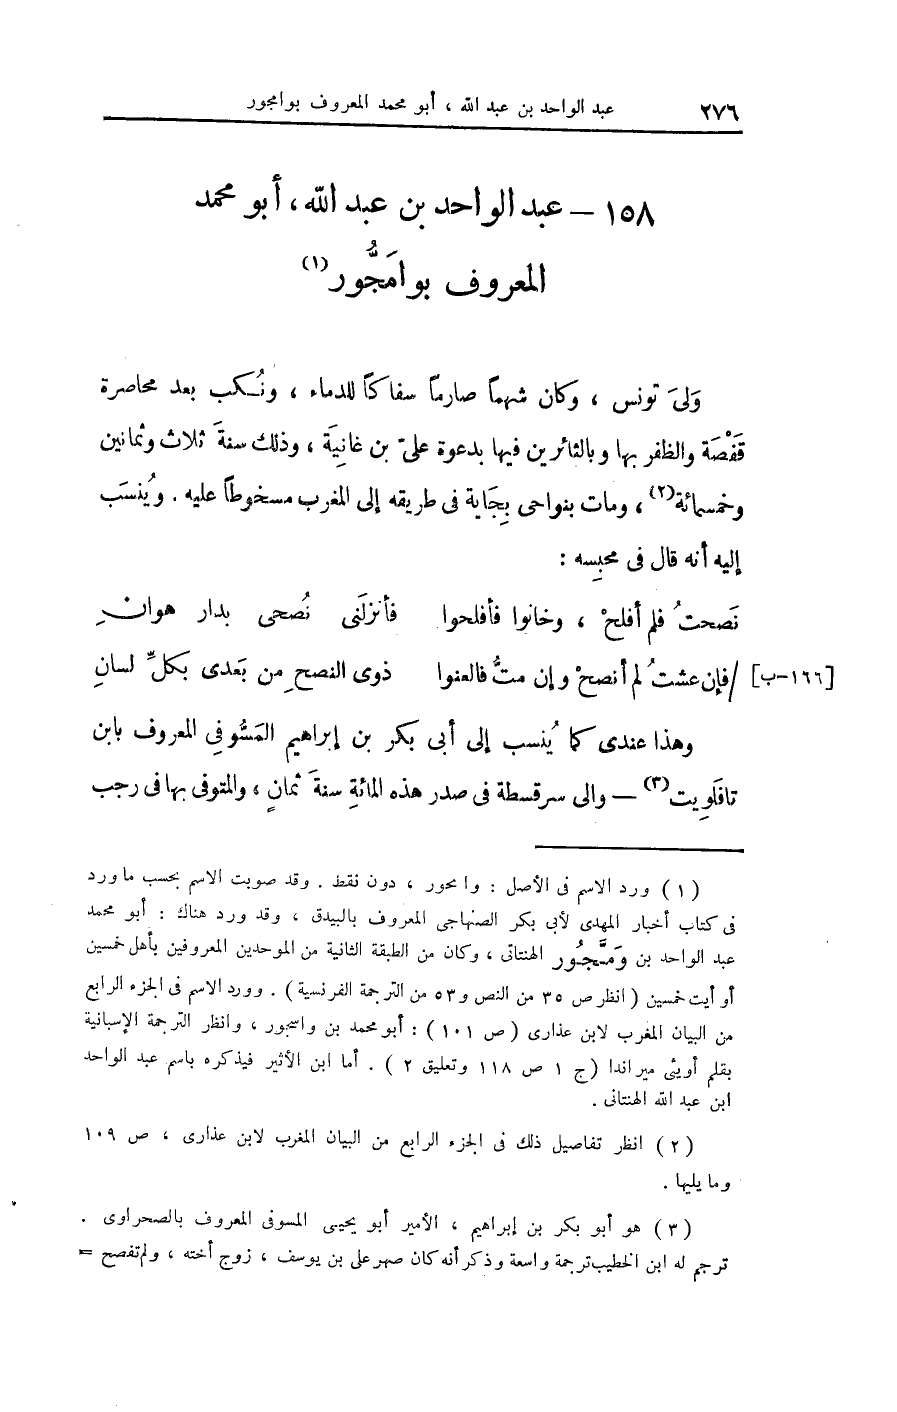 ٢٧٦ عبد الواحد بن عبد الله ، أبو محمد المعروف بوامجور
١٥٨ – عبد الواحد بن عبد الله ، أبو محمد
المعروف بوامَجُّور (١)
وَلىَ تونس ، وكان شهماً صارماً سفاكاً للدماء ، ونُكب بعد محاصرة
قَفْصَة والظفر بها وبالثائرين فيها بدعوة علىّ بن غانِيَة ، وذلك سنةَ ثلاث وثمانين
وخمسمائة (٢) ، ومات بنواحى بِجَاية فى طريقه إلى المغرب مسخوطاً عليه . ويُنسَب
إليه أنه قال فى محبِسه :
نَصحتُ فلم أفلحْ ، وخانوا فأفلحوا فأنزلَنى نُصحى بدار هوانِ
[١٦٦-ب] /فإن عشتُ لم أنصحْ وإن متُّ فالعنوا ذوى النصحِ من بَعدى بكلِّ لسانِ
وهذا عندى كما يُنسب إلى أبى بكر بن إبراهيم المَسُّوفى المعروف بابن
تافَلوِيت (٣) – والى سرقسطة فى صدر هذه المائةِ سنةَ ثمانٍ ، والمتوفى بها فى رجب
(١) ورد الاسم فى الأصل : وامحور ، دون نقط . وقد صوبت الاسم بحسب ماورد
فى كتاب أخبار المهدى لأبى بكر الصنهاجى المعروف بالبيدق ، وقد ورد هناك : أبو محمد
عبد الواحد بن وَمَجُّور الهنتاتى ، وكان من الطبقة الثانية من الموحدين المعروفين بأهل خمسين
أو أيت خمسين (انظر ص ٣٥ من النص و٥٣ من الترجمة الفرنسية) . وورد الاسم فى الجزء الرابع
من البيان المغرب لابن عذارى (ص ١٠١) : أبو محمد بن واسجور ، وانظر الترجمة الإسبانية
بقلم أويثى ميراندا (ج ١ ص ١١٨ وتعليق ٢) . أما ابن الأثير فيذكره باسم عبد الواحد
ابن عبد الله الهنتانى .
(٢) انظر تفاصيل ذلك فى الجزء الرابع من البيان المغرب لابن عذارى ، ص ١٠٩
وما يليها .
(٣) هو أبو بكر بن إبراهيم ، الأمير أبو يحيى المسوفى المعروف بالصحراوى .
ترجم له ابن الخطيب ترجمة واسعة وذكر أنه كان صهر على بن يوسف ، زوج أخته ، ولم تفصح =